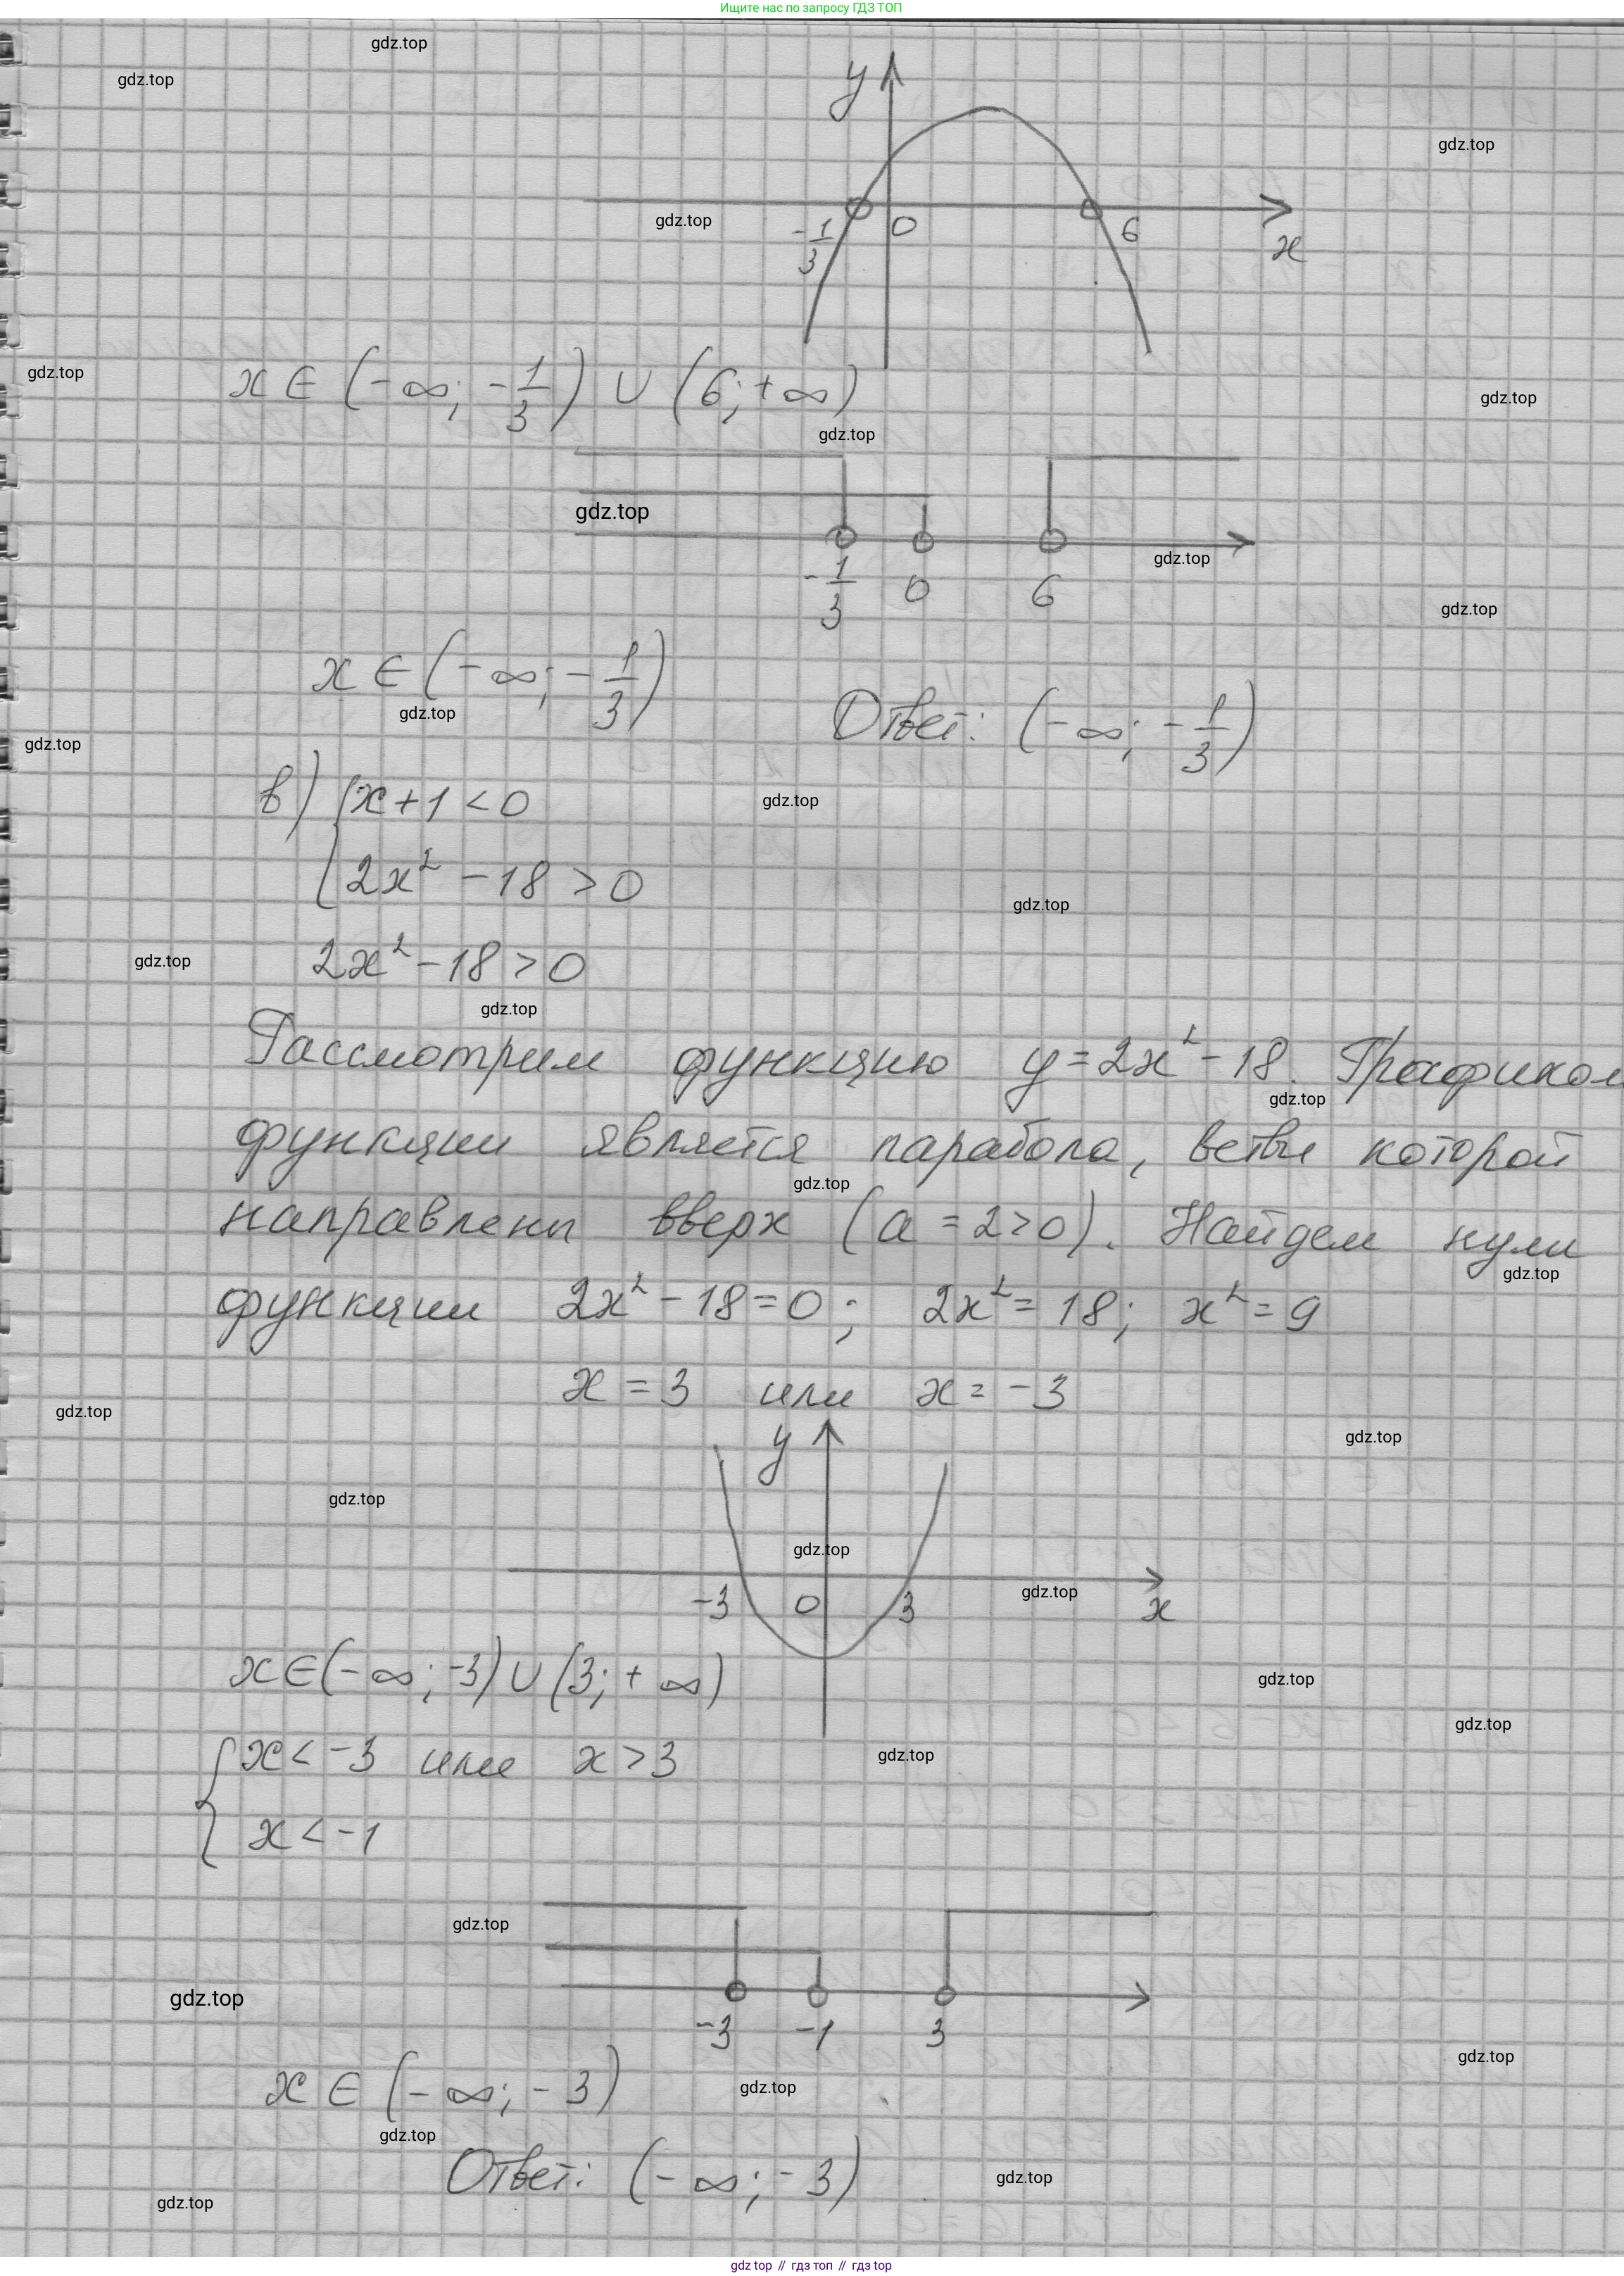 Ищите нас по запросу ГДЗ ТОП
gdz.top
gdz.top
y
gdz.top
gdz.top
-1/3 0 6 x
gdz.top
x ∈ (-∞; -1/3) ∪ (6; +∞)
gdz.top
gdz.top
gdz.top
gdz.top
-1/3 0 6
gdz.top
x ∈ (-∞; -1/3)
gdz.top
Ответ: (-∞; -1/3)
gdz.top
в) { x + 1 < 0
gdz.top
2x² - 18 > 0
gdz.top
2x² - 18 > 0
gdz.top
gdz.top
Рассмотрим функцию y = 2x² - 18. Графиком
gdz.top
функции является парабола, ветви которой
gdz.top
направлены вверх (a = 2 > 0). Найдем нули
gdz.top
функции 2x² - 18 = 0; 2x² = 18; x² = 9
x = 3 или x = -3
gdz.top
y
gdz.top
gdz.top
gdz.top
gdz.top
-3 0 3 x
x ∈ (-∞; -3) ∪ (3; +∞)
gdz.top
gdz.top
{ x < -3 или x > 3
gdz.top
x < -1
gdz.top
gdz.top
-3 -1 3
gdz.top
x ∈ (-∞; -3)
gdz.top
gdz.top
Ответ: (-∞; -3)
gdz.top
gdz.top
gdz top // гдз топ // гдз top